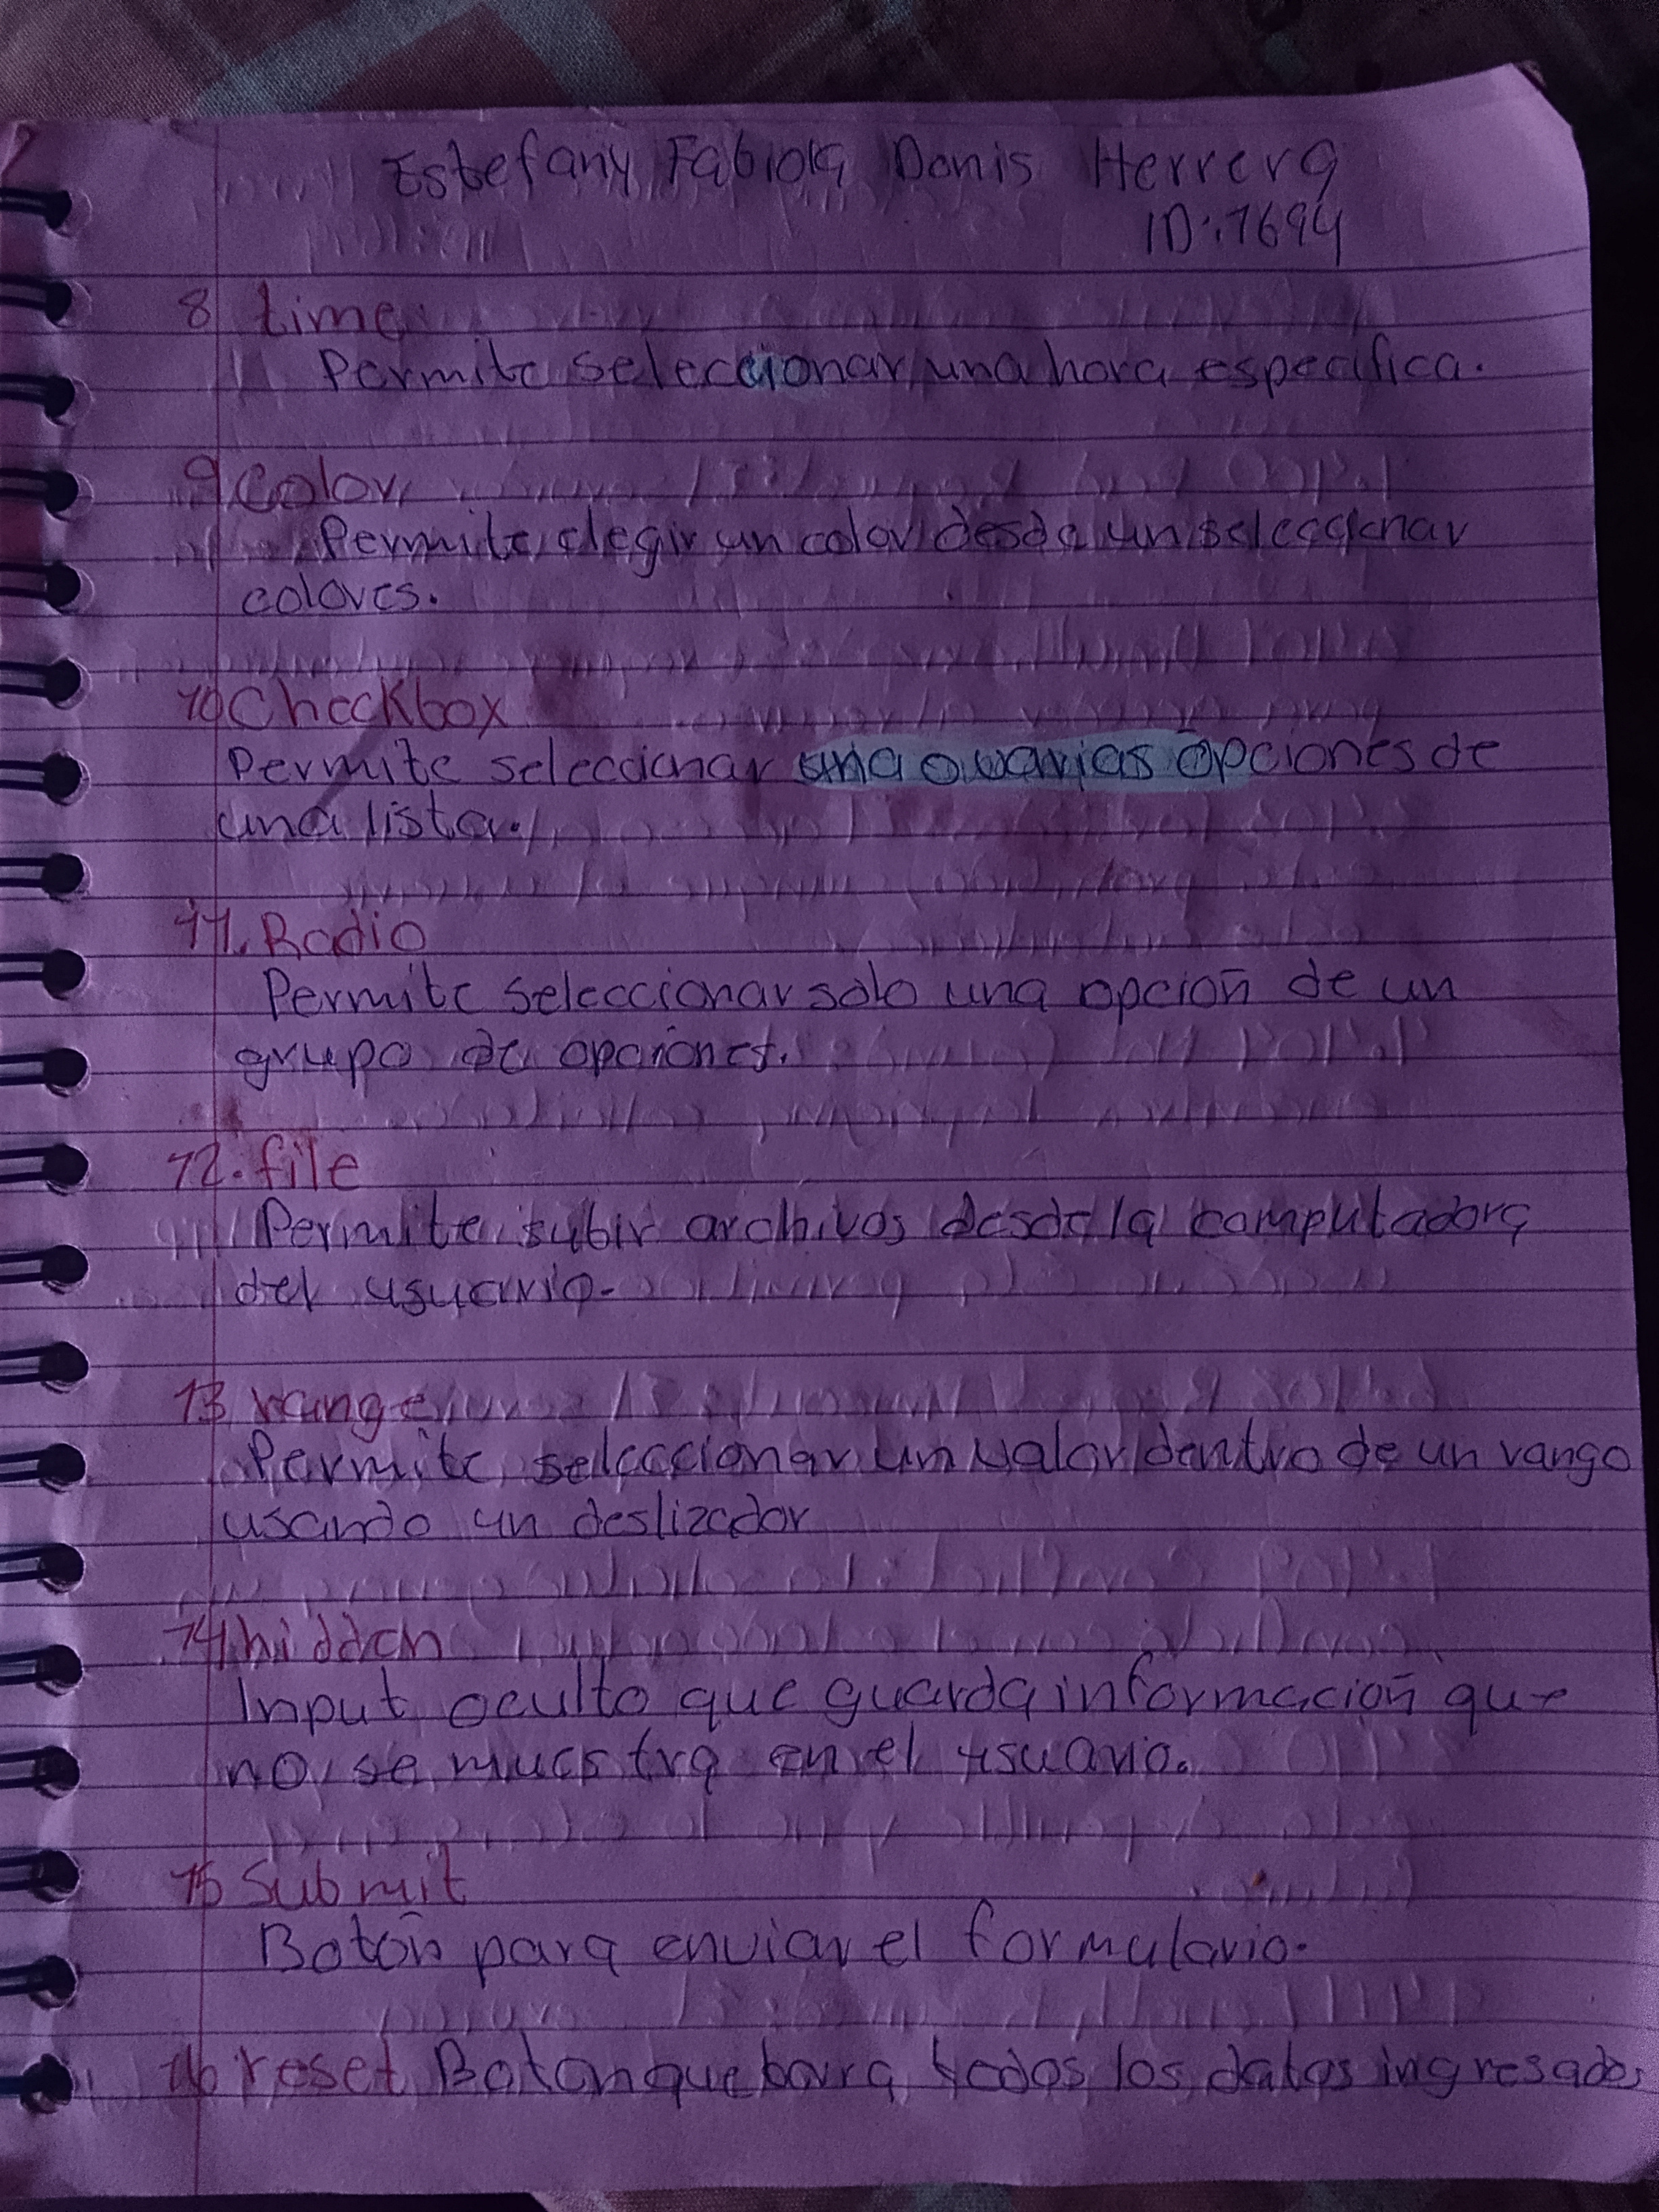 Estefany Fabiola Donis Herrera
ID:7694
8 time
Permite seleccionar una hora especifica.
9 Color
Permite elegir un color desde un seleccionar
colores.
10 Checkbox
Permite seleccionar una o varias opciones de
una lista.
11. Radio
Permite seleccionar solo una opción de un
grupo de opciones.
12. file
Permite subir archivos desde la computadora
del usuario.
13 range
Permite seleccionar un valor dentro de un rango
usando un deslizador
14 hidden
Input oculto que guarda información que
no se muestra en el usuario.
15 Submit
Botón para enviar el formulario.
16 reset Boton que borra todos los datos ingresados